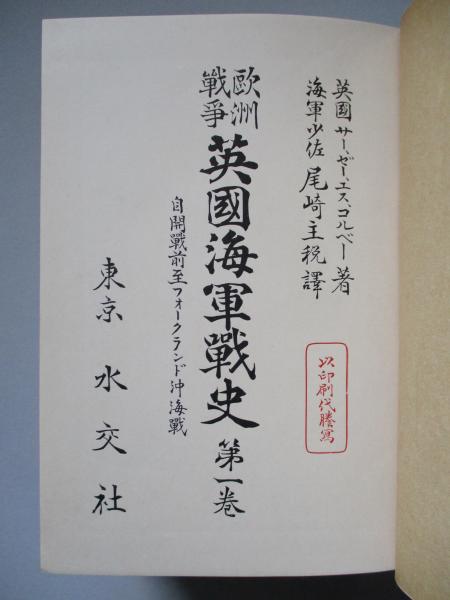 英國サー、ゼー、エス、コルベー著
海軍少佐 尾崎主税譯
以印刷代謄寫
歐洲戰爭
英國海軍戰史 第一巻
自開戰前至フォークランド沖海戰
東京 水交社